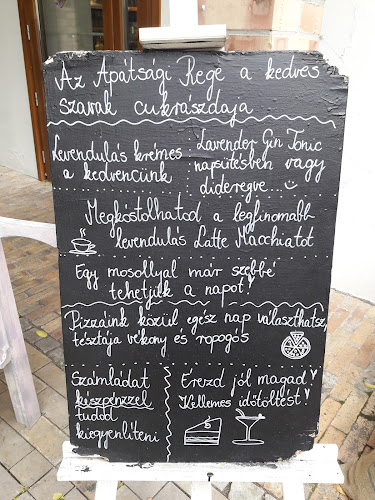 Az Apátsági Rege a kedves
szavak cukrászdája
Levendulás krémes
a kedvencünk
Lavender Gin Tonic
napsütésben vagy
dideregve...
Megkóstolhatod a legfinomabb
levendulás Latte Macchiatot
Egy mosollyal már szebbé
tehetjük a napot!
Pizzáink közül egész nap választhatsz,
tésztája vékony és ropogós
Számládat
készpénzzel
tudod
kiegyenlíteni
Érezd jól magad!
Kellemes időtöltést!